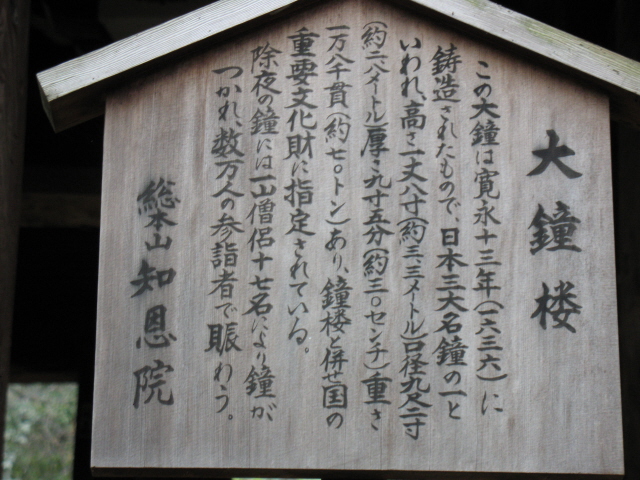 大鐘楼
この大鐘は寛永十三年(一六三六)に
鋳造されたもので、日本三大名鐘の一と
いわれ、高さ一丈八寸(約三、三メートル)口径九尺二寸
(約二、八メートル)厚さ九寸五分(約三〇センチ)重さ
一万八千貫(約七〇トン)あり、鐘楼と併せ国の
重要文化財に指定されている。
除夜の鐘には一山僧侶十七名により鐘が
つかれ、数万人の参詣者で賑わう。
総本山知恩院